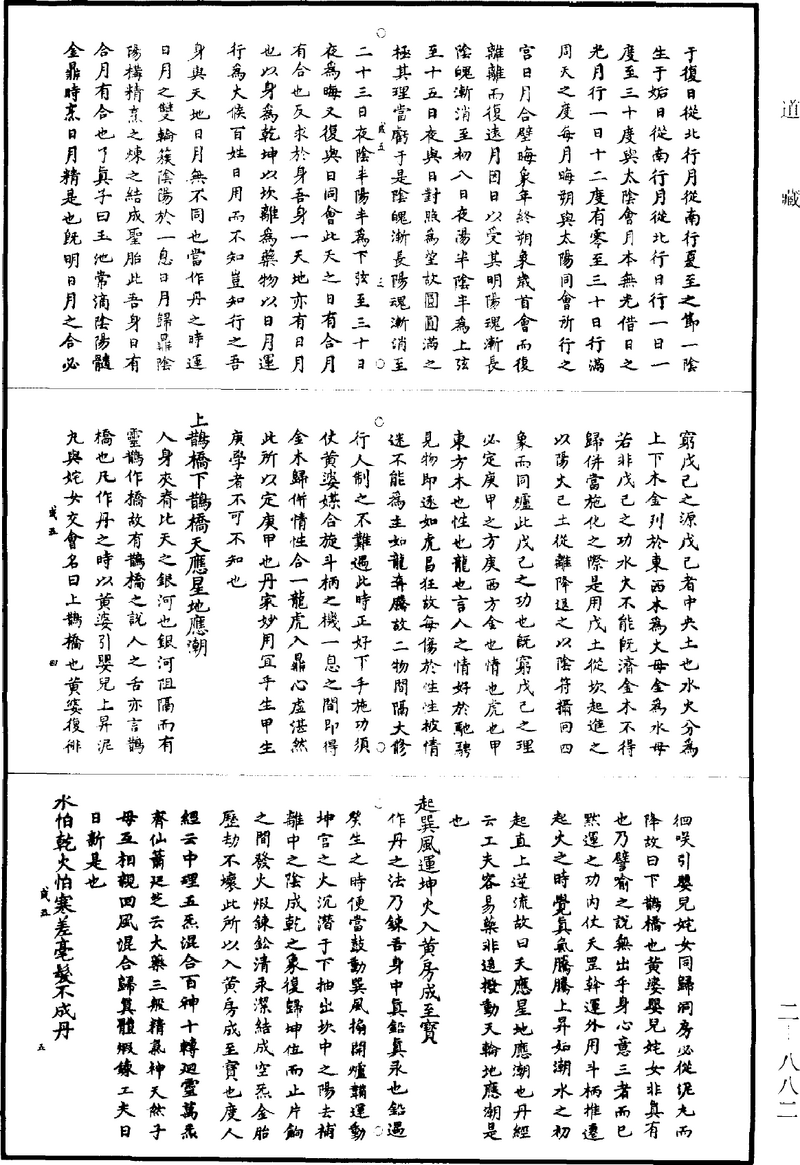 道藏
于復日從北行月從南行夏至之節一陰
生于姤日從南行月從北行日行一日一
度至三十度與太陰會月本無光借日之
光月行一日十二度有零至三十日行滿
周天之度每月晦朔與太陽同會所行之
宮日月合璧晦象年終朔象歲首會而復
離離而復遠月因日以受其明陽魂漸長
陰魄漸消至初八日夜陽半陰半為上弦
至十五日夜與日對照為望故圓圓滿之
極其理當虧于是陰魄漸長陽魂漸消至
二十三日夜陰半陽半為下弦至三十日
夜為晦又復與日同會此天之日有合月
有合也反求於身吾身一天地亦有日月
也以身為乾坤以坎離為藥物以日月運
行為火候百姓日用而不知豈知行之吾
身與天地日月無不同也當作丹之時運
日月之雙輪簇陰陽於一息日月歸鼎陰
陽構精烹之煉之結成聖胎此吾身日有
合月有合也了真子曰玉池常滴陰陽髓
金鼎時烹日月精是也既明日月之合必
窮戊己之源戊己者中央土也水火分為
上下木金列於東西木為火母金為水母
若非戊己之功水火不能既濟金木不得
歸併當施化之際是用戊土從坎起進之
以陽火己土從離降退之以陰符攝回四
象而同爐此戊己之功也既窮戊己之理
必定庚甲之方庚西方金也情也虎也甲
東方木也性也龍也言人之情好於馳騁
見物即逐如虎昌狂故每傷於性性被情
迷不能為主如龍奔騰故二物間隔大修
行人制之不難遇此時正好下手施功須
仗黃婆媒合旋斗柄之機一息之間即得
金木歸併情性合一龍虎入鼎心虛湛然
此所以定庚甲也丹家妙用宜乎生甲生
庚學者不可不知也
上鵲橋下鵲橋天應星地應潮
人身夾脊比天之銀河也銀河阻隔而有
靈鵲作橋故有鵲橋之說人之舌亦言鵲
橋也凡作丹之時以黃婆引嬰兒上昇泥
丸與姹女交會名曰上鵲橋也黃婆復徘
徊咲引嬰兒姹女同歸洞房必從泥丸而
降故曰下鵲橋也黃婆嬰兒姹女非真有
也乃譬喻之說無出乎身心意三者而已
默運之功內仗天罡斡運外用斗柄推遷
起火之時覺真氣騰騰上昇如潮水之初
起直上逆流故曰天應星地應潮也丹經
云工夫容易藥非遙撥動天輪地應潮是
也
起巽風運坤火入黃房成至寶
作丹之法乃鍊吾身中真鉛真汞也鉛遇
癸生之時便當鼓動巽風搧開爐鞴運動
坤宮之火沉潛于下抽出坎中之陽去補
離中之陰成乾之象復歸坤位而止片餉
之間發火煅鍊鉛清汞潔結成空炁金胎
歷劫不壞此所以入黃房成至寶也度人
經云中理五炁混合百神十轉迴靈萬炁
齊仙蕭廷芝云大藥三般精氣神天然子
母互相親回風混合歸真體煅鍊工夫日
日新是也
水怕乾火怕寒差毫髮不成丹
成五
三
成五
四
成五
五
二一八八二